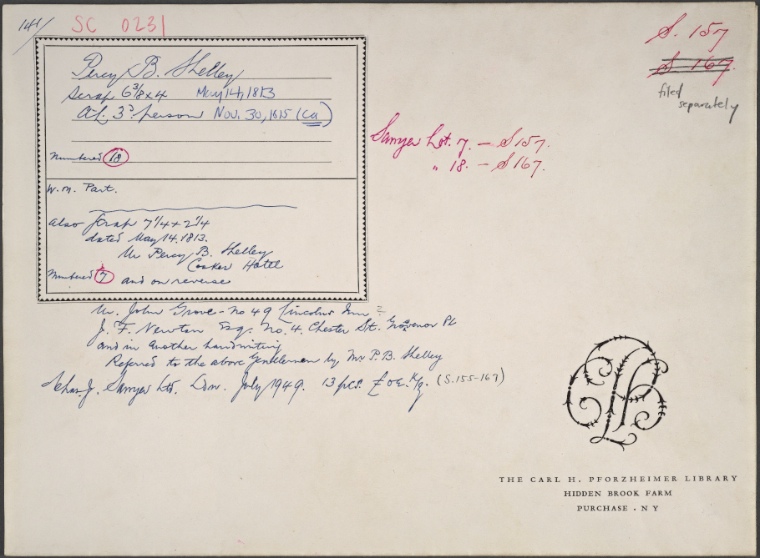 141/
SC 0231
S. 157
S. 167.
filed
separately
Percy B. Shelley
Scrap 6 3/8 x 4 May 14, 1813
3d person Nov. 30, 1815 (ca)
Numbered 18
W.M. Part.
also Scrap 7 1/4 x 2 1/4
dated May 14. 1813.
Mr Percy B. Shelley
Hotel
Numbered 7 and on reverse
Sawyer Lot. 7. — S157.
" 18. — S167.
Mr. John Grove - No 49 Lincolns Inn ?
J. F. Newton Esq. No. 4. Chester St. Grosvenor Pl
and in another handwriting
Referred to the above Gentlemen by Mr P. B. Shelley
Chas. J. Sawyer Ltd. Lon. July 1949. 13 pcs. (S.155-167)
THE CARL H. PFORZHEIMER LIBRARY
HIDDEN BROOK FARM
PURCHASE . N Y